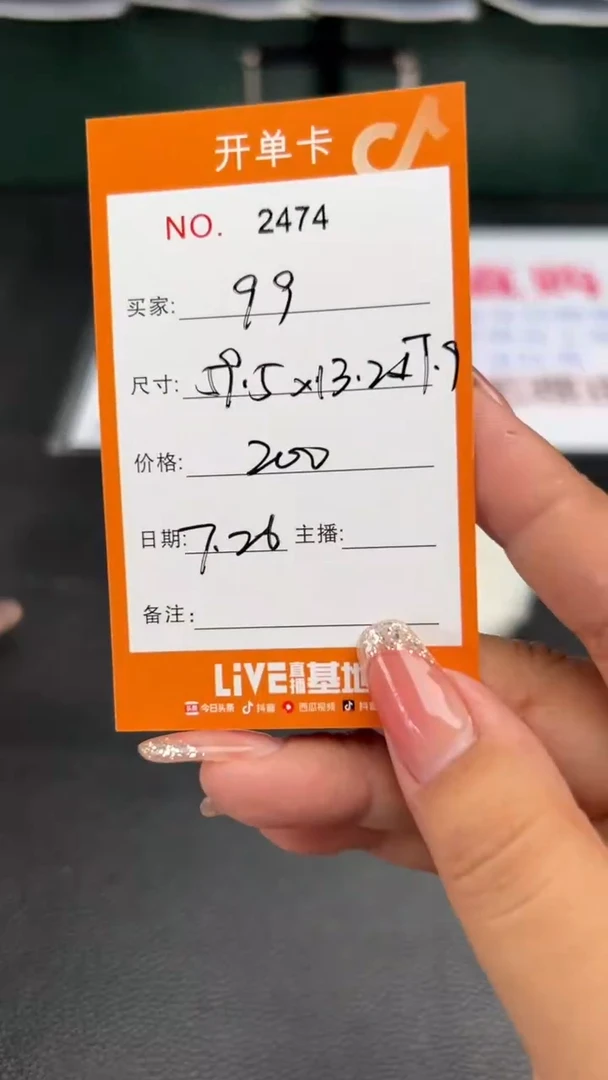 开单卡
NO. 2474
买家: 99
尺寸: 59.5x13.2x7.9
价格: 200
日期: 7.26 主播:
备注:
LiVE直播基地
今日头条 抖音 西瓜视频